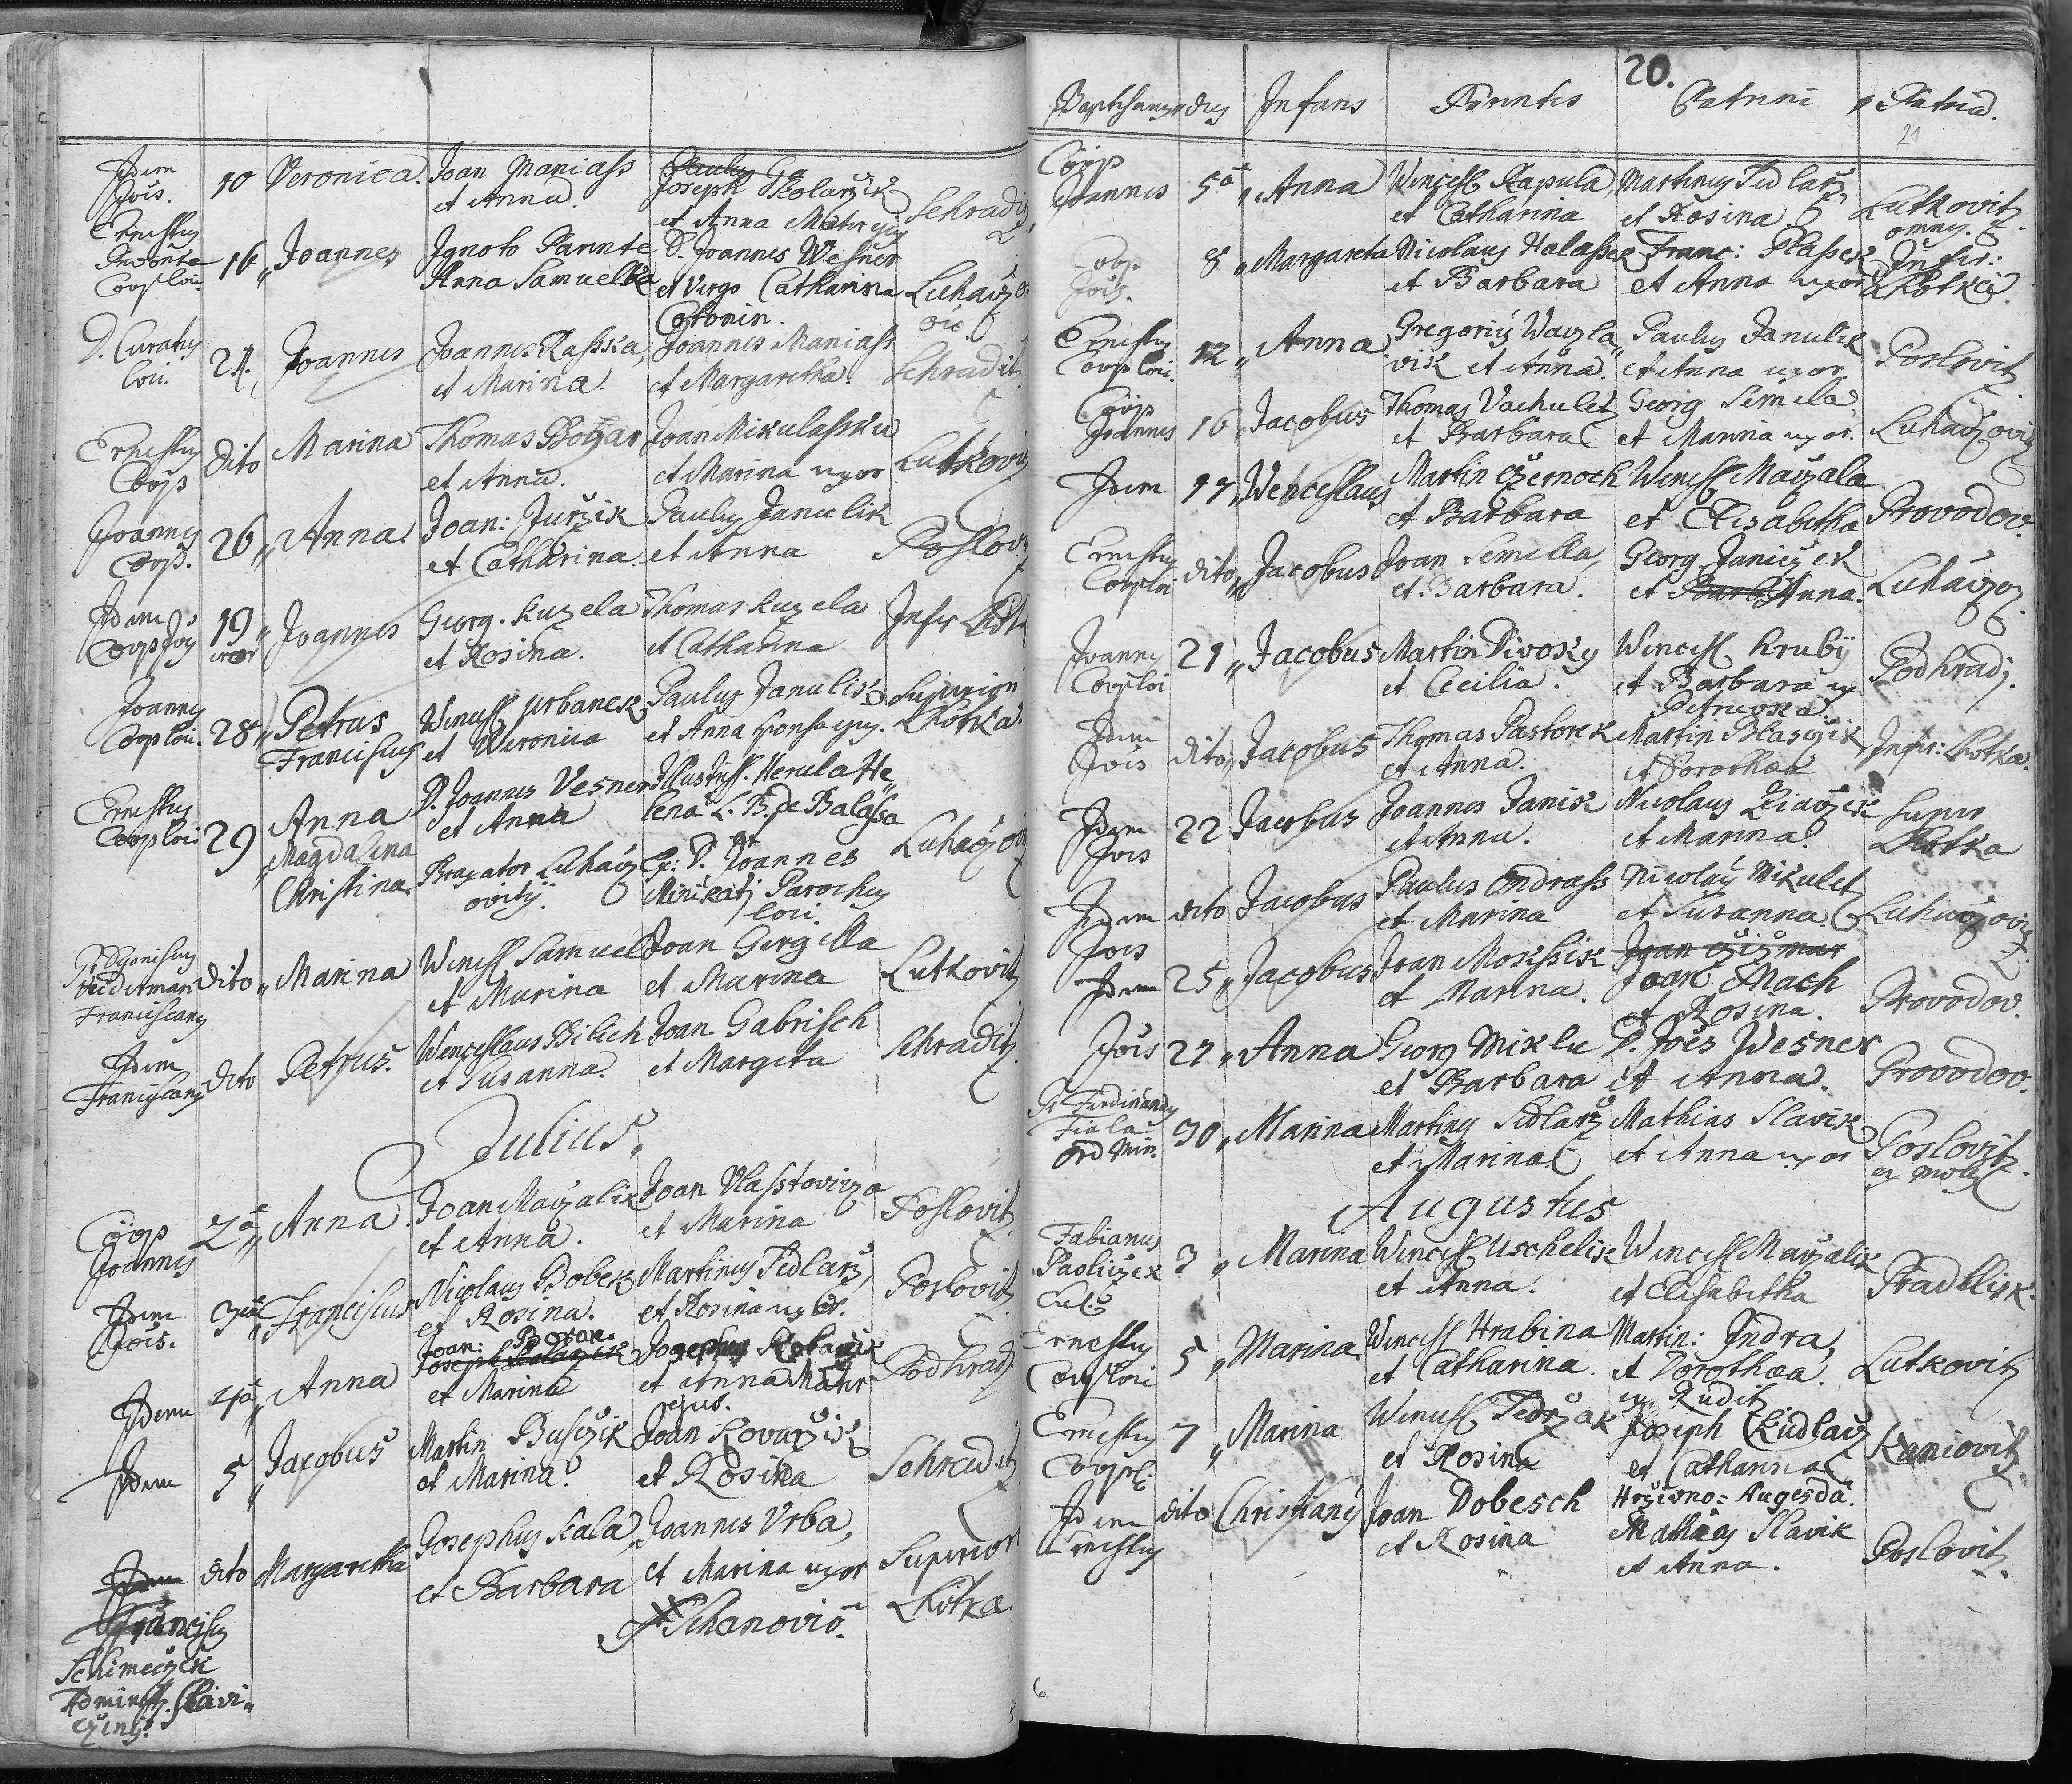 Idem Jois. 10 Veronica. Joan Maniass et Anna. Joseph Kolarzik et Anna Schraditz
Ernestus Coop loci 16 Joannes Ignoto Parente Anna Samuelka D. Joannes Wesner et Virgo Catharina Luhaczov
D. Curatus loci. 21. Joannes Joannes Rasska, et Marina. Joannes Maniass et Margaretha. Schradit
Ernestus Coop dito Marina Thomas et Anna. Joan Mikulassku et Marina uxor Lutkovitz
Joannes Coop. 26 „ Anna Joan: Jurzik et Catharina. Paulus Janulik et Anna Poslov
Idem Coop Jois 19 „ Joannes Georg. Kuzela et Rosina. Thomas Kuzela et Catharina Infer Lhota
Joannes Coop loci. 28 „ Petrus Franciscus Wencesl Urbanek et Weronica Paulus Janulik et Anna Superior Lhotka.
Ernestus Coop loci 29 „ Anna Magdalina Christina D. Joannes Vesner et Anna Braxator Luhacz ovitij. Illustriss. Herula He„ lena L. B. de Balassa et D. Joannes Parochus loci. Luhaczov
Franciscany dito „ Marina Wencesl Samuel et Marina Joan Gergella et Marina Lutkovitz
Idem Franciscany dito Petrus. Wenceslaus Bilich et Susanna. Joan Gabrisch et Margeta Schraditz
Julius.
Coop Joannes 2a „ Anna. Joan Maczalik et Anna. Joan Vlasstovicza et Marina Poslovitz
Idem Jois. 3tia „ Franciscus Nicolaus Bobek et Rosina. Martinus Sedlarz et Rosina uxor. Poslovitz
Idem 4ta „ Anna Joan: Joseph et Marina Josephus Kolarzik et Anna Matur ejus. Podhrad
Idem 5 „ Jacobus Martin Busczik et Marina. Joan Kovarzik et Rosina Schradit
Idem dito Margaretha Josephus Kala, et Barbara Joannes Vrba, et Marina uxor Schanovio. Superior Lhotka.
Franciscus
Schimeczek
Administ. Slavi„
czinij.
20.
21
Baptisans dies Infans Parentes Patrini Patria.
Coop Joannes 5a „ Anna Wencesl Kapula, et Catharina Martinus Sedlarz et Rosina Lutkovitz omnes.
Coop Jois. 8 „ Margareta Nicolaus Halasse et Barbara Franc: Plassek et Anna uxor Infer: Lhotka.
Ernestus Coop loci. 12 „ Anna Gregorius Waczla„ vik et Anna. Paulus Janulik et Anna uxor Poslovitz
Coop Joannes 16 „ Jacobus Thomas Vachulet et Barbara Georg Semela et Marina uxor. Luhaczovitz
Idem 17 „ Wenceslaus Martin Czernoch et Barbara Wencesl Maczala et Elisabetha Provodov.
Ernestus Coop loci dito „ Jacobus Joan Semella, et Barbara. Georg Janiczek et Barb Anna. Luhaczov.
Joannes Coop loci 21 „ Jacobus Martin Divoky et Cecilia. Wencesl Hruby et Barbara ex Petruvka. Podhradj.
Idem Jois dito „ Jacobus Thomas Pastorek et Anna. Martin Blasczik et Dorothea Infer: Lhotka.
Idem Jois 22 Jacobus Joannes Janik et Anna. Nicolaus et Marina. Super Lhotka
Idem Jois dito Jacobus Paulus Ondrass et Marina Nicolaus Mikulet et Susanna. Luhaczovitz
Idem 25 „ Jacobus Joan Mokssik et Marina. Joan Czizmar Joan Mach et Rosina. Provodov.
Jois 27 „ Anna Georg Miklu et Barbara D. Jois Wesner et Anna. Provodov.
P. Ferdinandus Fiala Ord Min. 30 „ Marina Martinus Sedlarz et Marina Mathias Slavik et Anna uxor Poslovitz ex mola
Augustus
Fabianus 3 „ Marina Wencesl Uschelik et Anna. Wencesl Maczalik et Elisabetha Pradlisk.
Ernestus Coop loci 5 „ Marina. Wencesl Hrabina et Catharina. Martin: Jndra, et Dorothea. ex Ruditz Lutkovitz
Ernestus Coop l. 7 „ Marina Wencesl Pedrzak et Rosina Joseph Kudlacz et Catharina Kaniovitz
Idem Ernestus dito Christianus Joan Dobesch et Rosina Mathias Slavik et Anna. Poslovitz.